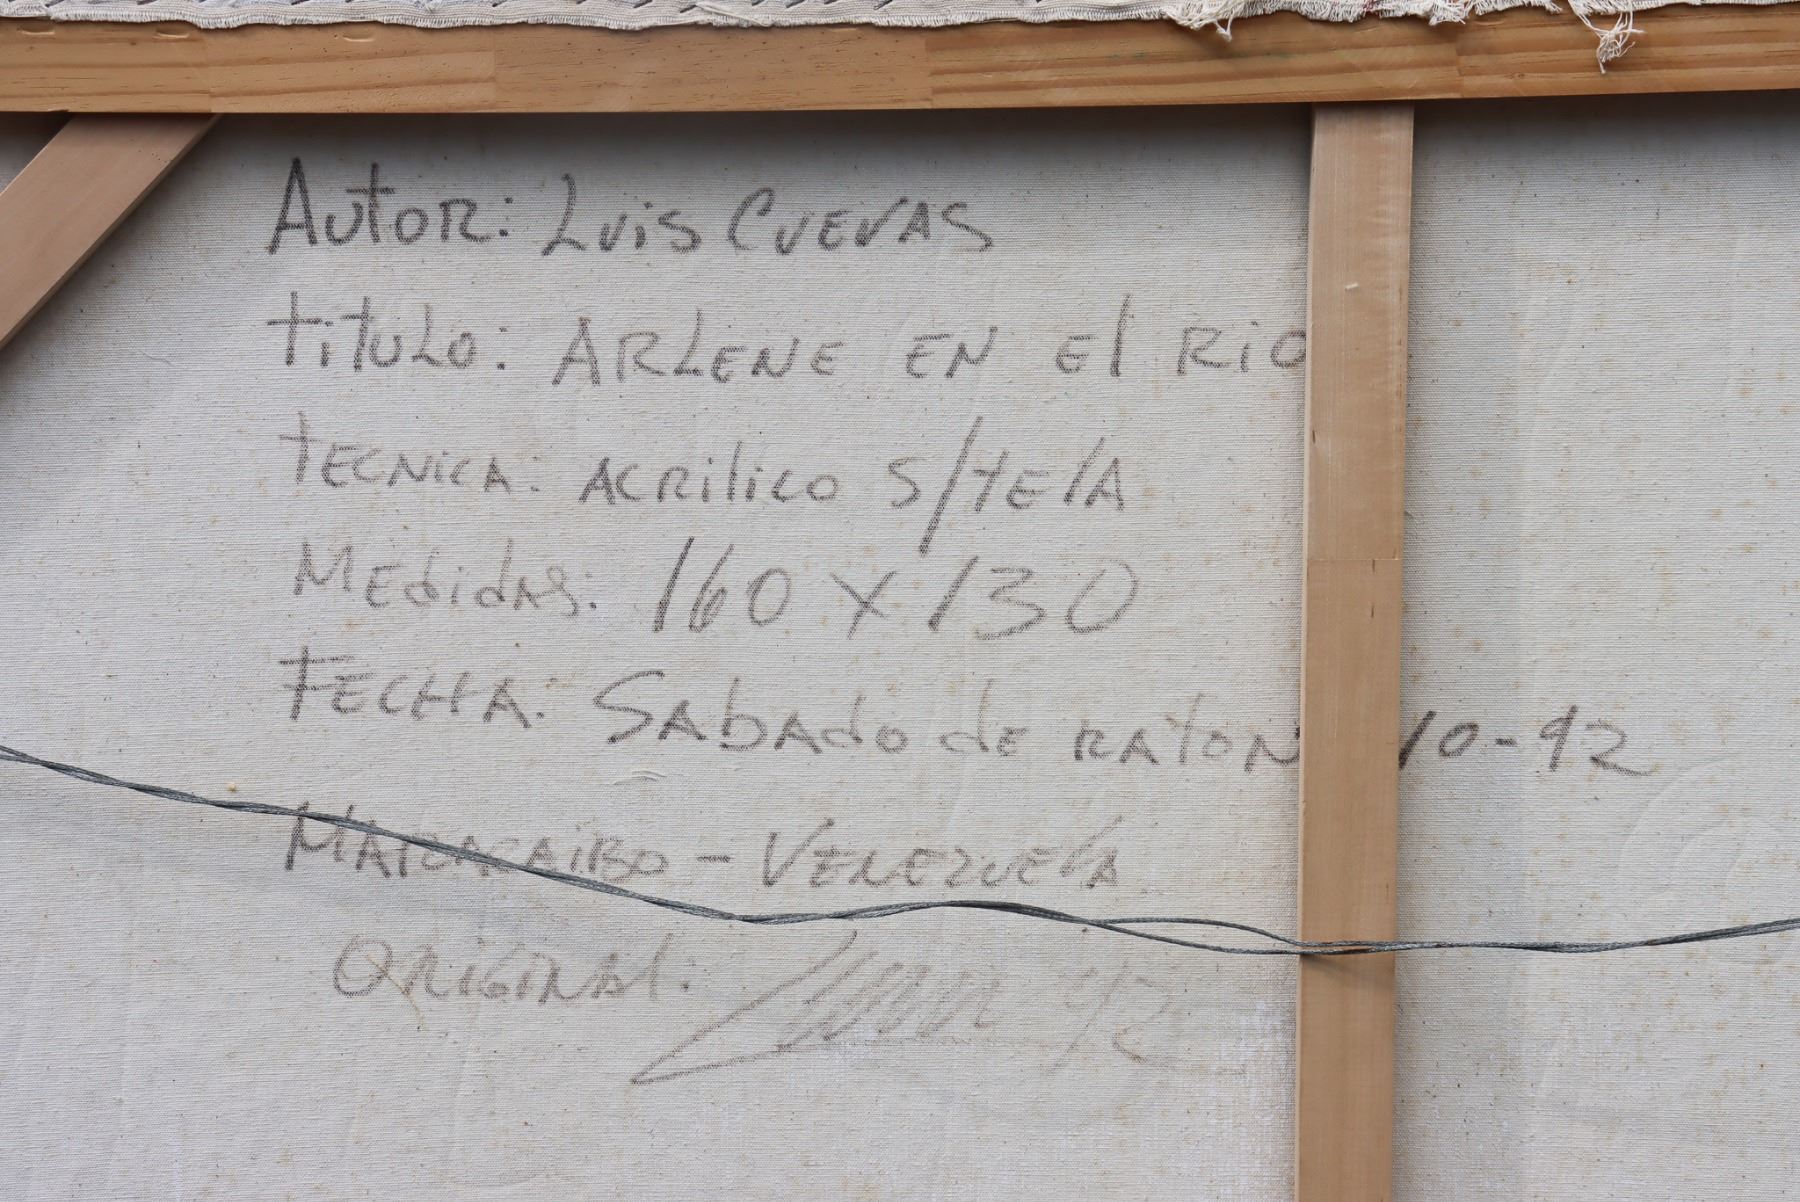 Autor: Luis Cuevas
titulo: ARLENE EN El RiO
tECNiCA: ACRiliCO S/tElA
MEdidAS: 160 x 130
FECHA: SAbAdo dE RAtoN 10-92
MARACAiBO - VENEZUElA
ORiGiNAl: 92